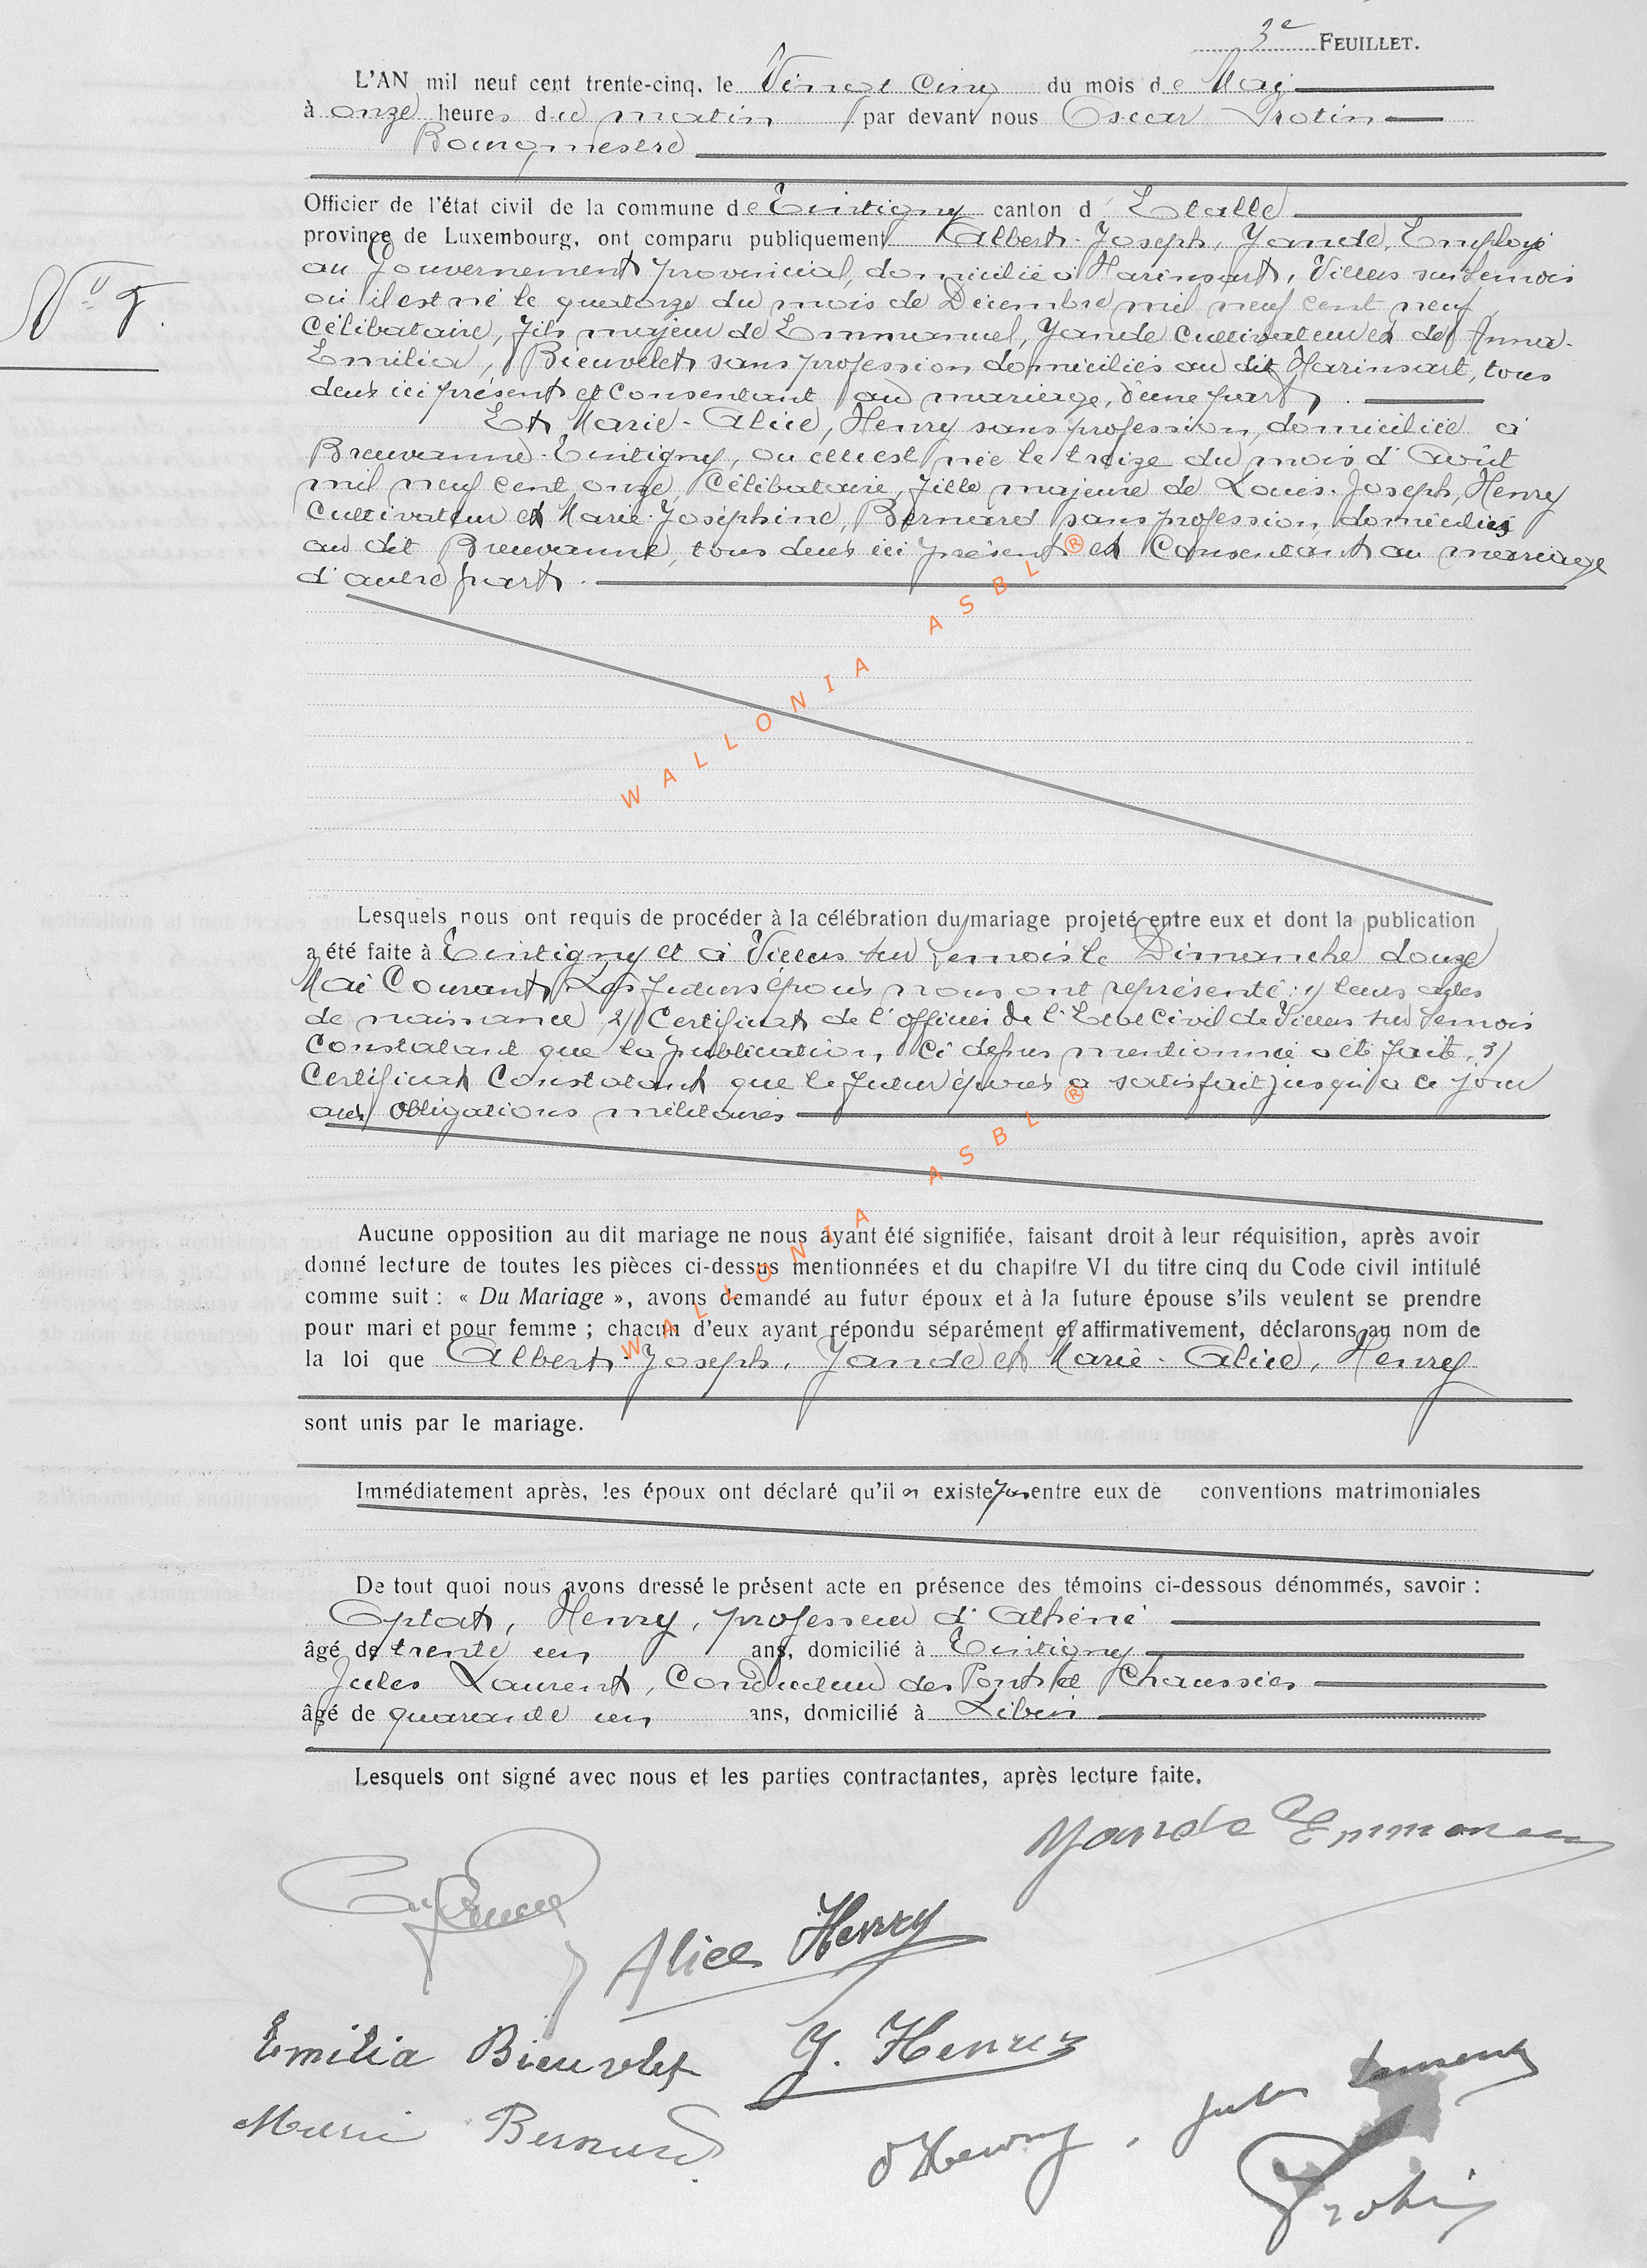 3e FEUILLET.
L'AN mil neuf cent trente-cinq, le Vingt Cinq du mois de Mai
à onze heures du matin par devant nous Oscar Protin
Bourgmestre
Officier de l'état civil de la commune de Tintigny canton d' Etalle
province de Luxembourg, ont comparu publiquement Albert-Joseph, Jande, Employé
au Gouvernement provincial, domicilié à Harinsart, Villers sur Semois
N° 5.
où il est né le quatorze du mois de Décembre mil neuf cent neuf
Célibataire, fils majeur de Emmanuel, Jande Cultivateur et de Anna-
Emilia, Bieuvelet sans profession domiciliés au dit Harinsart, tous
deux ici présent et Consentant au mariage, d'une part,
Et Marie-Alice, Henry sans profession, domiciliée à
Breuvanne-Tintigny, où elle est née le treize du mois d'Août
mil neuf cent onze, Célibataire, fille majeure de Louis-Joseph, Henry
Cultivateur et Marie-Joséphine, Bernard sans profession, domiciliés
au dit Breuvanne, tous deux ici présent et Consentant au mariage
d'autre part.
WALLONIA ASBL ®
Lesquels nous ont requis de procéder à la célébration du mariage projeté entre eux et dont la publication
a été faite à Tintigny et à Villers sur Semois le Dimanche douze
Mai Courant. Les futurs époux nous ont représenté : 1/ leurs actes
de naissance, 2/ Certificat de l'officier de l'Etat Civil de Villers sur Semois
Constatant que la publication, Ci dessus mentionnée a été faite, 3/
Certificat Constatant que le futur époux a satisfait jusqu'à ce jour
aux obligations militaires
WALLONIA ASBL ®
Aucune opposition au dit mariage ne nous ayant été signifiée, faisant droit à leur réquisition, après avoir
donné lecture de toutes les pièces ci-dessus mentionnées et du chapitre VI du titre cinq du Code civil intitulé
comme suit : « Du Mariage », avons demandé au futur époux et à la future épouse s'ils veulent se prendre
pour mari et pour femme ; chacun d'eux ayant répondu séparément et affirmativement, déclarons au nom de
la loi que Albert-Joseph, Jande et Marie-Alice, Henry
sont unis par le mariage.
Immédiatement après, les époux ont déclaré qu'il n existe pas entre eux de conventions matrimoniales
De tout quoi nous avons dressé le présent acte en présence des témoins ci-dessous dénommés, savoir :
Optat, Henry, professeur d'athéné
âgé de trente un ans, domicilié à Tintigny
Jules Laurent, Conducteur des Ponts et Chaussées
âgé de quarante un ans, domicilié à Libin
Lesquels ont signé avec nous et les parties contractantes, après lecture faite.
Yande Emmanuel
Alice Henry
Emilia Bieuvelet J. Henry
Marie Bernard O Henry, Jules Laurent
Protin